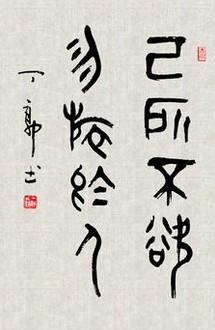 己所不欲
勿施於人
丁郭土